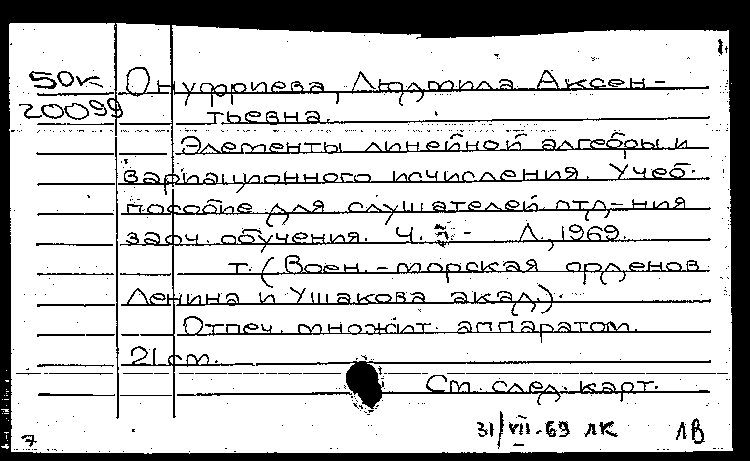 1.
50к Онуфриева, Людмила Аксен-
20099 тьевна.
Элементы линейной алгебры и
вариационного исчисления. Учеб.
пособие для слушателей отд-ния
заоч. обучения. Ч. - Л., 1969.
т. (Воен.-морская орденов
Ленина и Ушакова акад.).
Отпеч. множит. аппаратом.
21 см.
См. след. карт.
31/VII-69 ЛК ЛВ
7